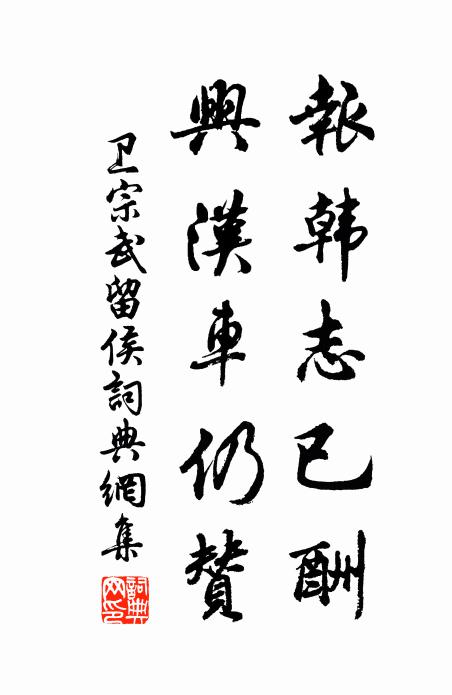 報韩志已酬
興漢車仍贊
卫宗武留侯詞典網集
詞典网印